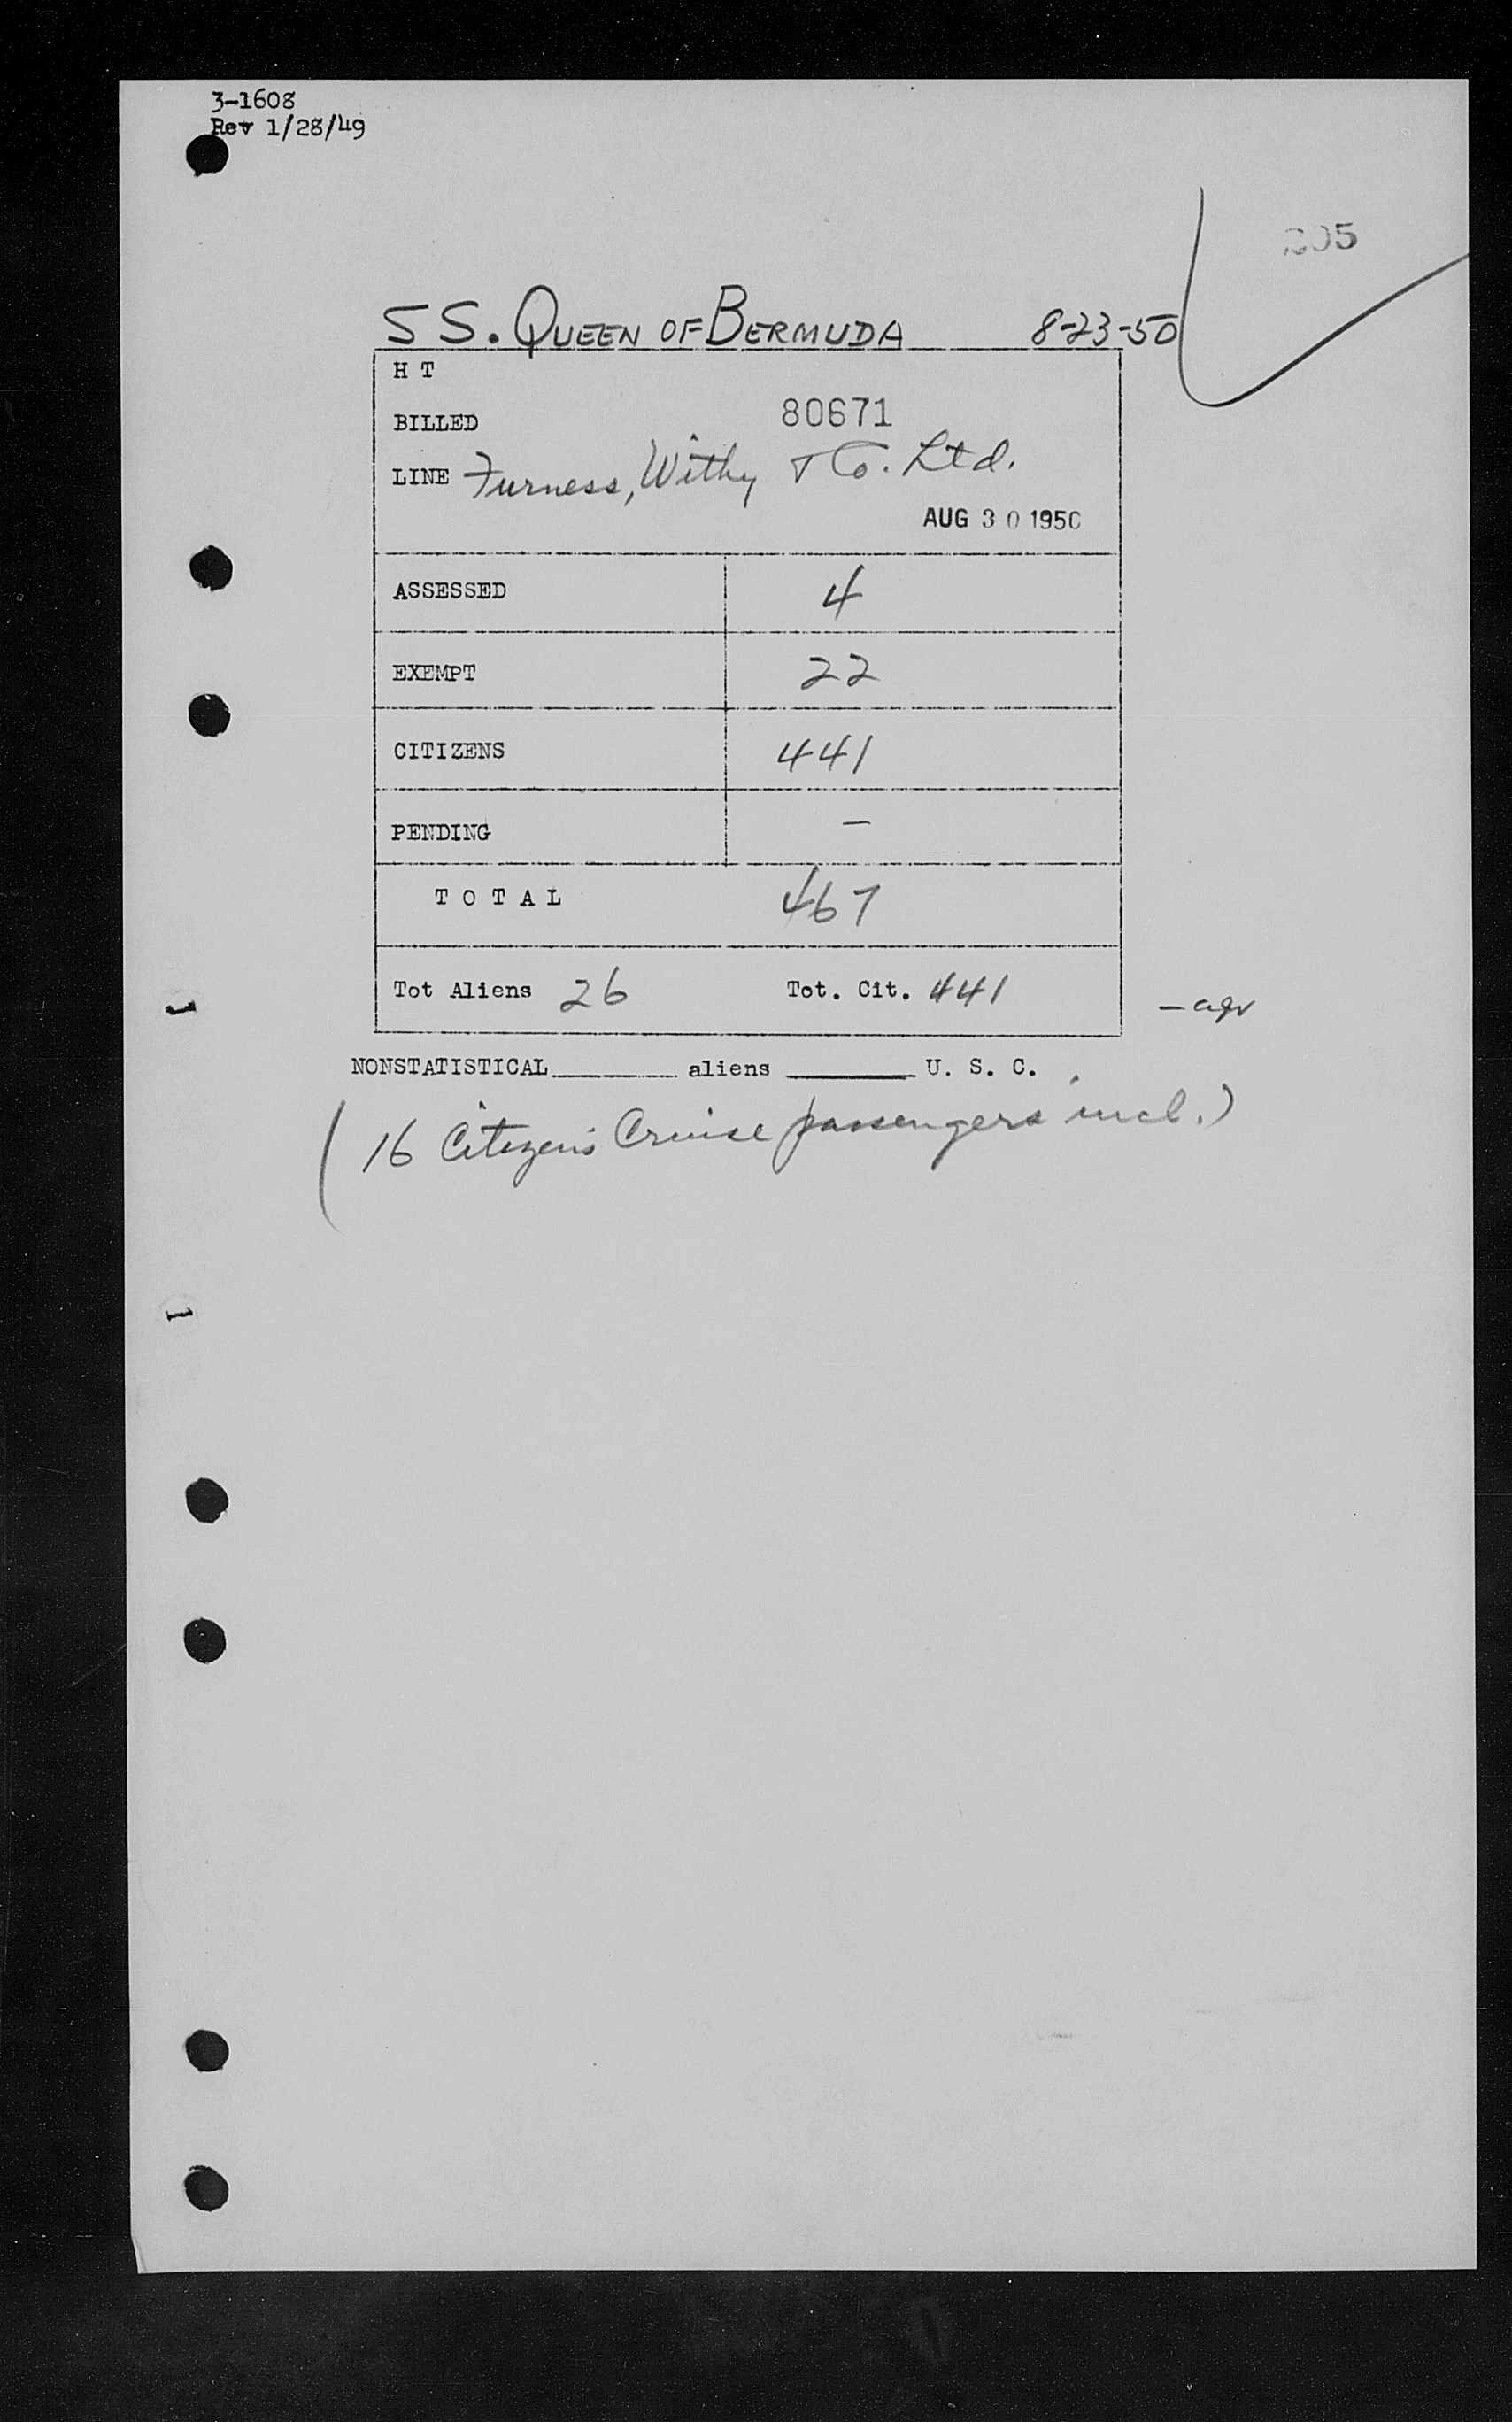 3-1608
Rev 1/28/49
S S. QUEEN OF BERMUDA 8-23-50
H T
BILLED 80671
LINE Furness, Withy & Co. Ltd.
AUG 30 1950
ASSESSED 4
EXEMPT 22
CITIZENS 441
PENDING –
T O T A L 467
Tot Aliens 26 Tot. Cit. 441
NONSTATISTICAL aliens U. S. C.
(16 Citizens Cruise passengers incl.)